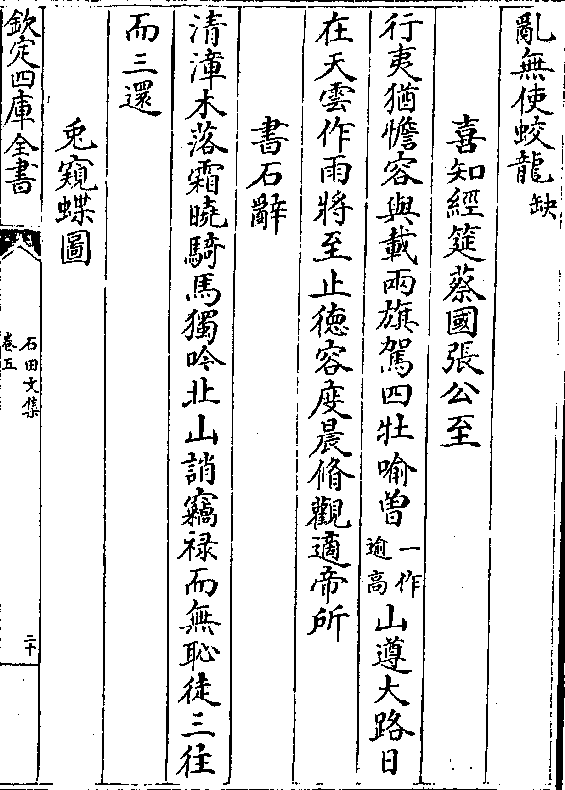 亂無使蛟龍缺
喜知經筵蔡國張公至
行夷猶憺容與載兩旗駕四牡喻曽一作逾髙山遵大路日
在天雲作雨將至止徳容度晨脩觀適帝所
書石辭
清漳木落霜曉騎馬獨吟北山誚竊禄而無恥徒三往
而三還
兎窺蝶圖
欽定四庫全書
石田文集
卷五
二十